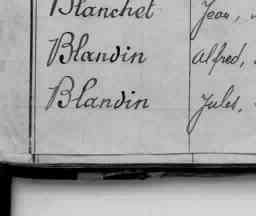 Blanchet Jean,
Blandin Alfred,
Blandin Jules,